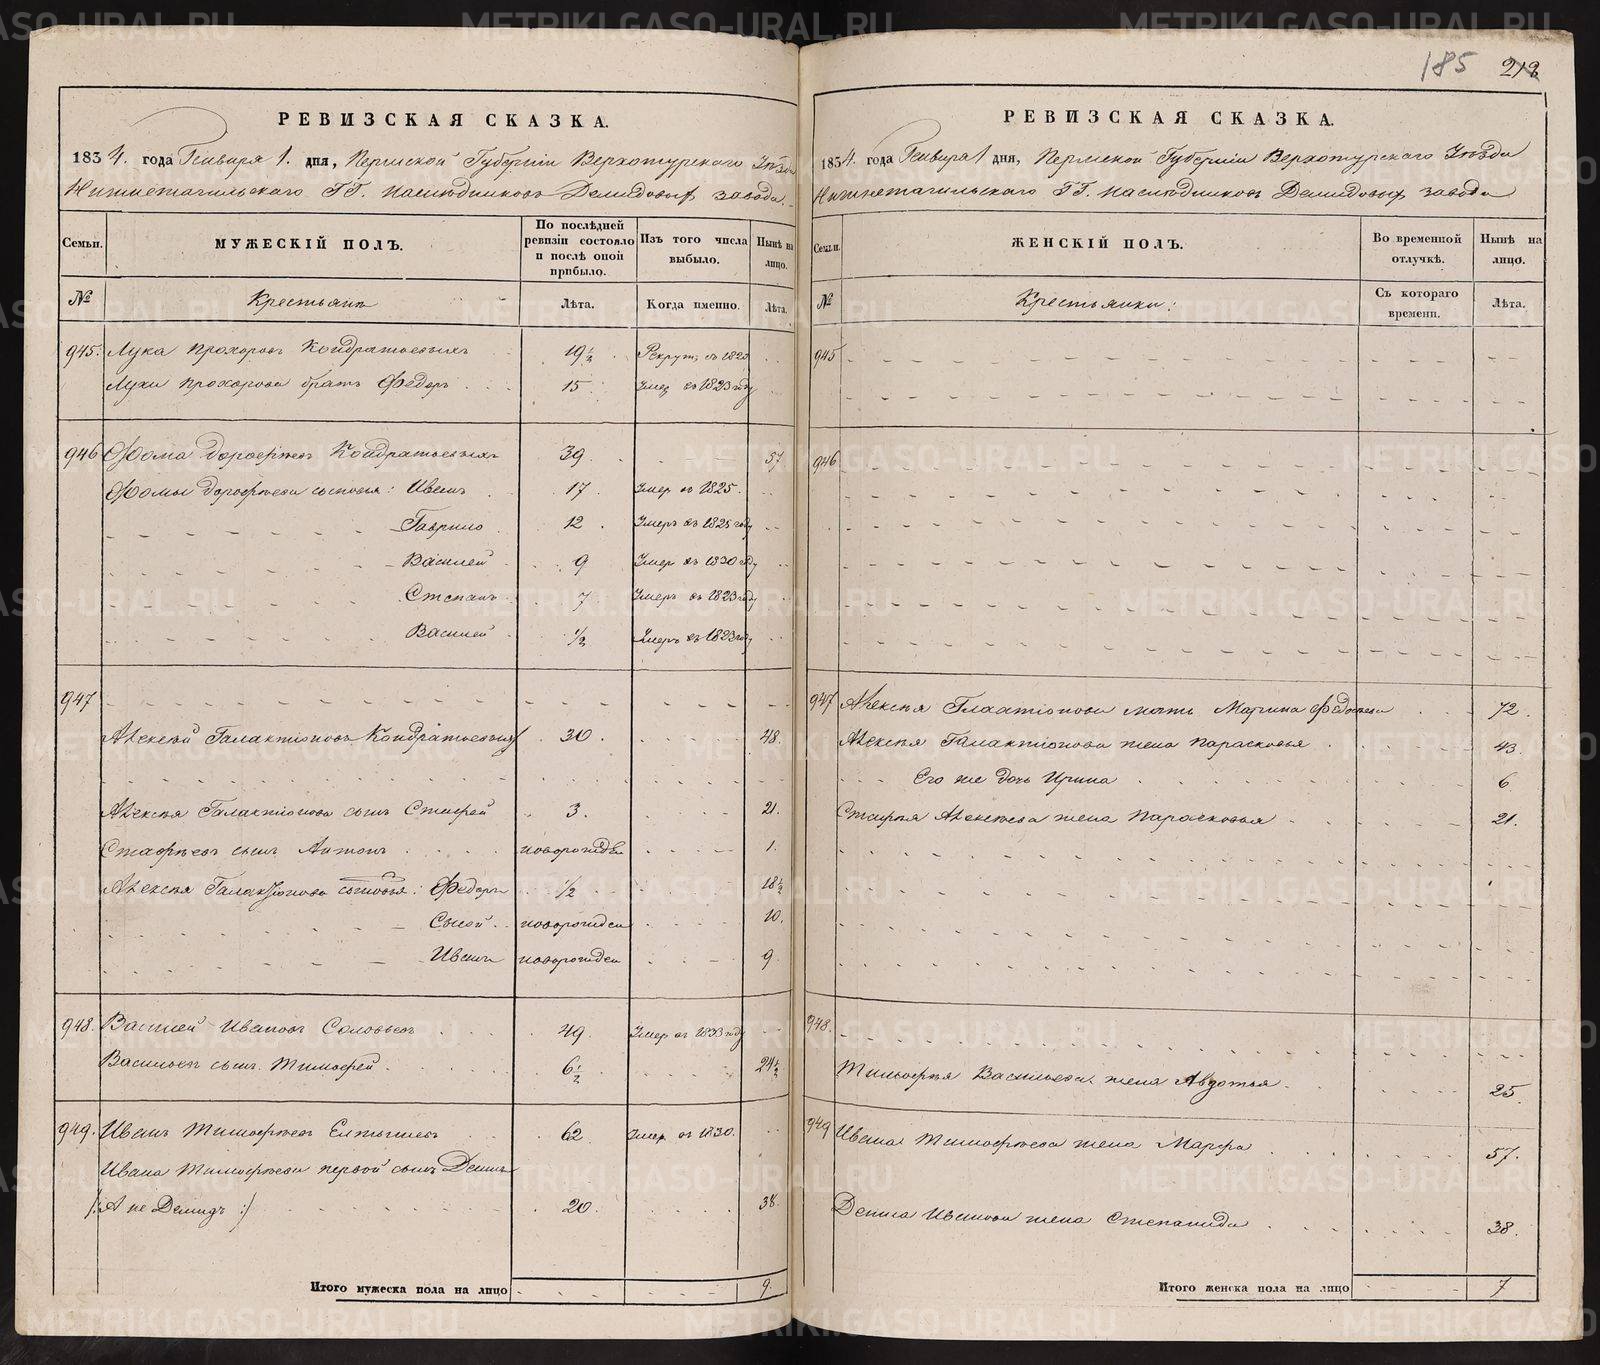 185 213
РЕВИЗСКАЯ СКАЗКА.
1834. года Генваря 1. дня, Пермской Губерніи Верхотурскаго Уѣзда
Нижнетагильскаго ГГ. наслѣдниковъ Демидовыхъ завода.
Семьи. МУЖЕСКІЙ ПОЛЪ. По послѣдней ревизіи состояло и послѣ оной прибыло. Изъ того числа выбыло. Нынѣ на лицо.
№ Крестьянъ Лѣта. Когда именно. Лѣта.
945. Лука Прохоровъ Кондратьевыхъ 19½ Рекрут. въ
Луки Прохорова братъ Федоръ 15 Умер въ 1823 году
946 Фома Дорофѣевъ Кондратьевыхъ 39. 57
Фомы Дорофѣева сыновья: Иванъ 17. Умер въ 1825.
Гаврило 12. Умеръ въ 1825 году
Василей 9 Умер въ 1830 году
Степанъ 7 Умеръ въ 1823 году
Василей ½ Умеръ въ 1823 году
947
Алексѣй Галактіоновъ Кондратьевыхъ 30. 48.
Алексѣя Галактіонова сынъ Стафей 3. 21.
Стафѣевъ сынъ Антонъ новорожден 1.
Алексѣя Галактіонова сыновья: Федоръ ½ 18½
Сысой новорожден 10.
Иванъ новорожден 9
948. Василей Ивановъ Соловьевъ 49. Умер въ 1833 году
Васильевъ сынъ Тимофей 6½ 24½
949. Иванъ Тимофѣевъ Елтышевъ 62 Умер въ 1830.
Ивана Тимофѣева первой сынъ Денисъ
/: А не Демидъ :/ 20. 38.
Итого мужеска пола на лицо 9.
РЕВИЗСКАЯ СКАЗКА.
1834. года Генваря 1 дня, Пермской Губерніи Верхотурскаго Уѣзда
Нижнетагильскаго ГГ. наслѣдниковъ Демидовыхъ завода
Семьи. ЖЕНСКІЙ ПОЛЪ. Во временной отлучкѣ. Нынѣ на лицо.
№ Крестьянки: Съ котораго времени. Лѣта.
945
946
947 Алексѣя Галактіонова мать Марина Федосѣева 72.
Алексѣя Галактіонова жена Парасковья 43.
Его же дочь Ирина 6
Стафѣя Алексѣева жена Парасковья 21.
948.
Тимофѣя Васильева жена Авдотья 25.
949 Ивана Тимофѣева жена Марфа 57.
Дениса Иванова жена Степанида 38.
Итого женска пола на лицо 7
METRIKI.GASO-URAL.RU